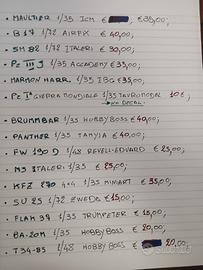 - MAULTIER 1/35 ICM. € 35,00;
- B 17 1/72 AIRFIX € 40,00;
- SM 82 1/72 ITALERI € 30,00;
- PZ III J 1/35 ACCADEMY € 35,00;
- MARMON HARR. 1/35 IBG € 35,00;
- PZ I° GUERRA MONDIALE 1/35 TAVROMODEL 10 €;
→ NO DECAL.
- BRUMMBAR 1/35 HOBBYBOSS € 40,00;
- PANTHER 1/35 TAMYIA € 40,00;
- FW 190 D 1/48 REVELL-EDUARD € 25,00;
- M3 ITALERI 1/35 € 25,00;
- KFZ 270 4×4 1/35 MINIART € 35,00;
- SU 25 1/72 ZVEDE € 15,00;
- FLAK 37 1/35 TRUMPETER € 15,00;
- BA-20M 1/35 HOBBY BOSS € 20,00;
- T34-85 1/48 HOBBYBOSS € 20,00;
subito